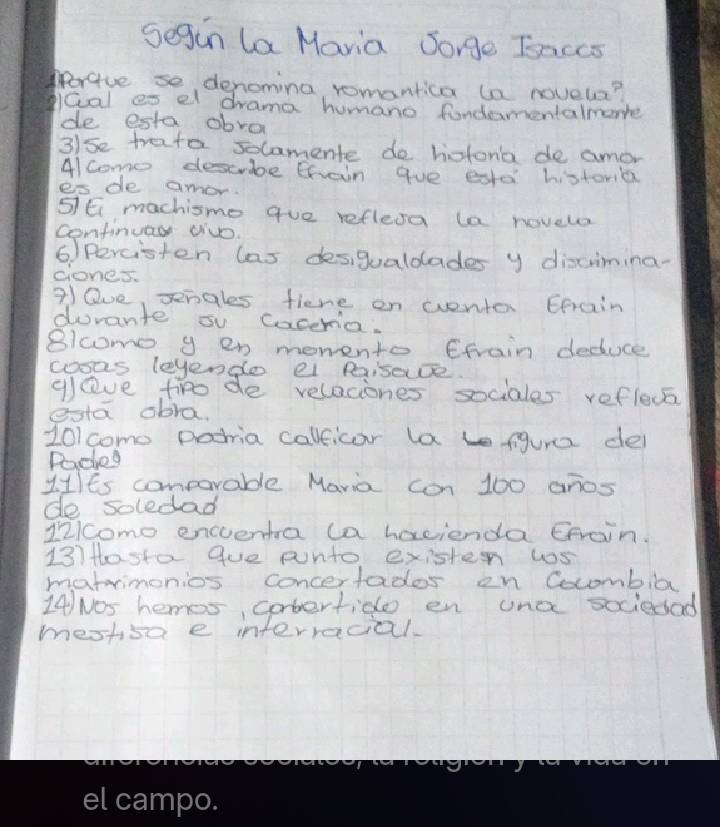 Según la Maria Jorge Isaccs
1)Porque se denomina romantica la novela?
2)Cual es el drama humano fundamentalmente
de esta obra
3)Se trata solamente de historia de amor
4)Como describe Efrain que esta historia
es de amor.
5)El machismo que refleja la novela
continua vivo.
6)Percisten las desigualdades y discrimina-
ciones.
7)Que señales tiene en cuenta Efrain
durante su caceria.
8)Como y en momento Efrain deduce
cosas leyendo el Paisaje.
9)Que tipo de relaciones sociales refleja
esta obra.
10)como podria calificar la figura del
Padre
11)Es comparable Maria con 100 años
de soledad
12)Como encuentra la hacienda Efrain.
13)Hasta que punto existen los
matrimonios concertados en Colombia
14)Nos hemos convertido en una sociedad
mestisa e interracial.
diferencias sociales, la religión y la vida en
el campo.